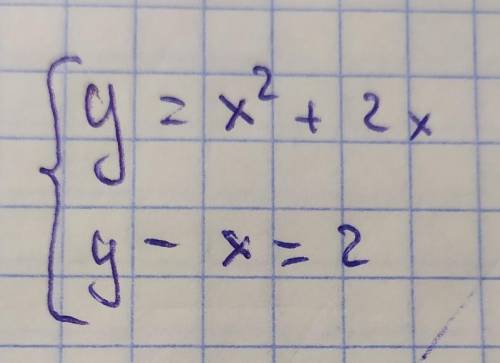 y = x² + 2x
y - x = 2